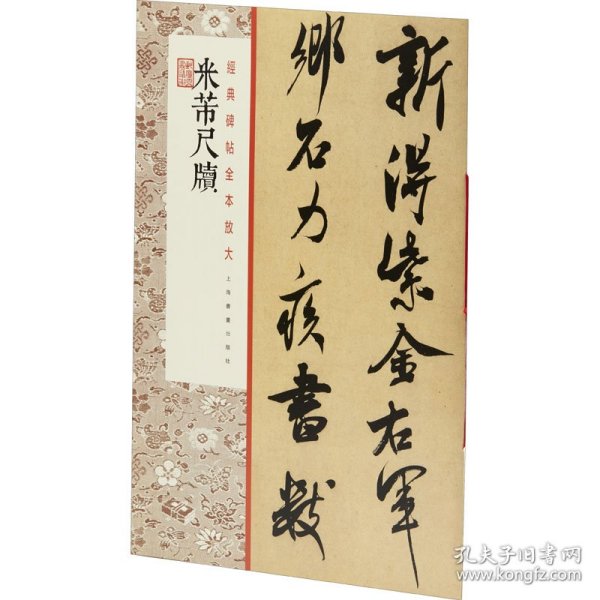 新得紫金右軍
鄉石力疾書數
經典碑帖全本放大
米芾尺牘
上海書畫出版社
孔夫子旧书网
www.kongfz.com